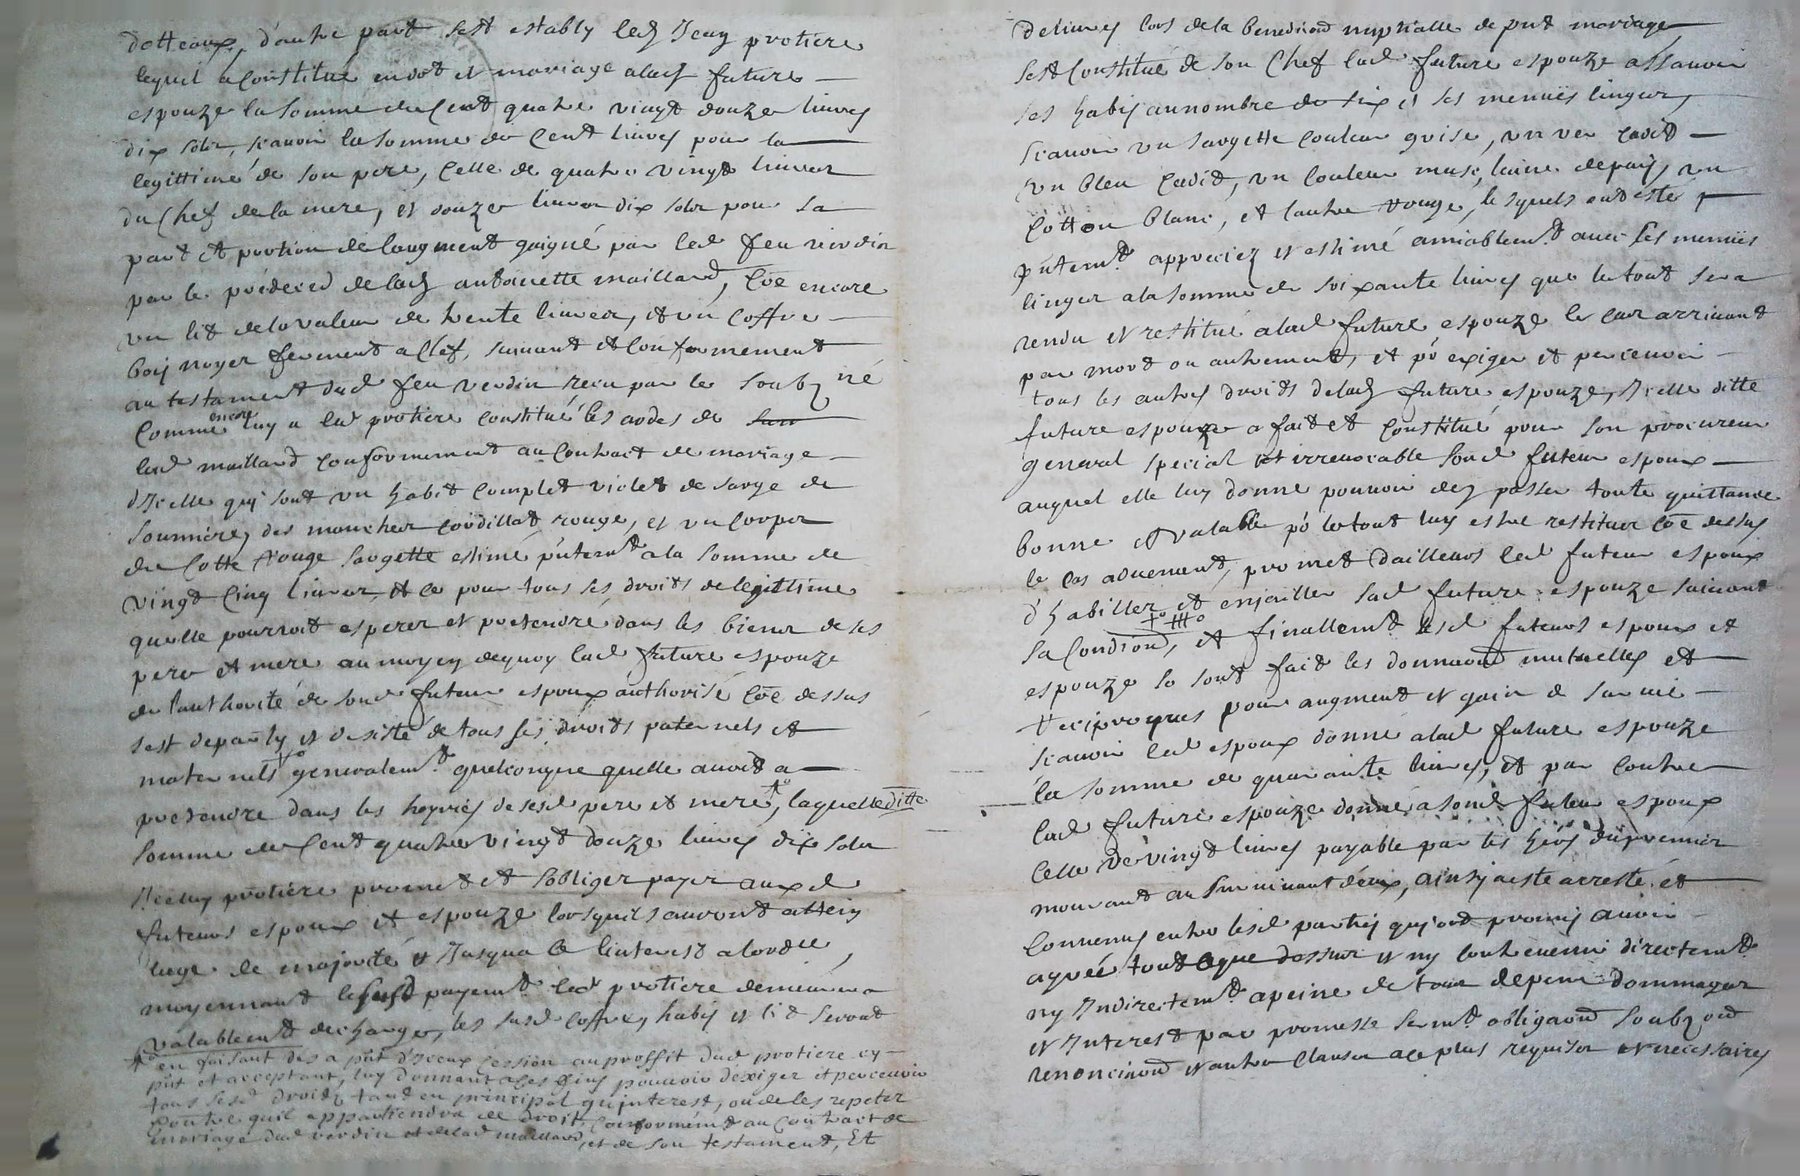 dotteaux, d'autre part sest estably led Jean protiere
lequel a constitué en dot et mariage alad future
espouze la somme de Cent quatre vingt douze livres
dix solz, scavoir la somme de Cent livres pour la
legittime de son pere, celle de quatre vingt livres
du Chef de la mere, et douze livres dix solz pour sa
part et portion de laugment gaigné par led feu verdin
par le prédeced de lad antoinette maillard, Coe encore
un lit de la valeur de trente livres, et un coffre
bois noyer ferment a clef, suivant et conformement
au testament dud feu verdin receu par le soubz né
Comme encore luy a led protiere constitué les ardes de
lad maillard conformement au contract de mariage
d'Icelle qui sont un habit complet violet de sarge de
sommiere, des manches cordillat rouge, et un corps
de cotte rouge sargette estimé pntemt a la somme de
vingt cinq livres, et ce pour tous ses droits de legittime
quelle pourroit esperer et pretendre dans les biens de ses
pere et mere au moyen dequoy lad future espouze
de lauthorité de sond futeur espoux authorisé coe dessus
sest departy et desisté de tous ses droits paternels et
maternels generalemt quelconque quelle auroit a
pretendre dans les hoyries de sesd pere et mere, laquelle ditte
somme de Cent quatre vingt douze livres dix solz
Iceluy protiere promet et soblige payer auxd
futeurs espoux et espouze lorsquils auront attein
laage de majorité et Jusqua ce linterest a lordre,
moyennant lesusd payemt led protiere demeurera
valablemt dechargé, les susd coffre, habis et lit seront
en faisant des a pnt d'Iceux cession au proffit dud protiere cy
pnt et acceptant, luy donnant a ces fins pouvoir dexiger et percevoir
tous sesd droits tant en principal quinterest, ou de les repeter
contre quil appartiendra de droit, conformemt au contract de
mariage dud verdin et delad maillard, et de son testament, Et
delivrés lors de la benediction nuptialle de pnt mariage
sest constitué de son Chef lad future espouze assavoir
ses habis au nombre de six et ses menues linges,
scavoir un sargette couleur grise, un ver cadit
un bleu cadit, un couleur muse, laine de pais, un
Cotton blanc, et lautre rouge, lesquels ont esté
pntemt appreciez et estimé amiablemt avec ses menues
linges a la somme de soixante livres que le tout sera
rendu et restitué alad future espouze le cas arrivant
par mort ou autrement, et pr exiger et percevoir
tous les autres droits delad future espouze, Icelle ditte
future espouze a fait et constitué pour son procureur
general special et irrevocable sond futeur espoux
auquel elle luy donne pouvoir den passer toute quittance
bonne et valable pr le tout luy estre restituer coe dessus
le cas advenent, promet dailleurs led futeur espoux
d'habiller et enjoailler sad future espouze suivant
sa condion, et finallemt lesd futeurs espoux et
espouze se sont fait les donnaons mutuelles et
reciproques pour augment et gain de survie
scavoir led espoux donne alad future espouze
la somme de quarante livres, et par contre
lad future espouze donne a sond futeur espoux
celle de vingt livres payable par les hers du premier
mourant au survivant deux, ainsy a esté arresté et
convenus entre lesd parties qui ont promis avoir
agréé tout ce que dessus et ny contrevenir directemt
ny Indirectemt a peine de tous depens dommages
et Interest par promesse sermt obligaon soubzon
renonciaon et autres clauses a ce plus requises et necessaires